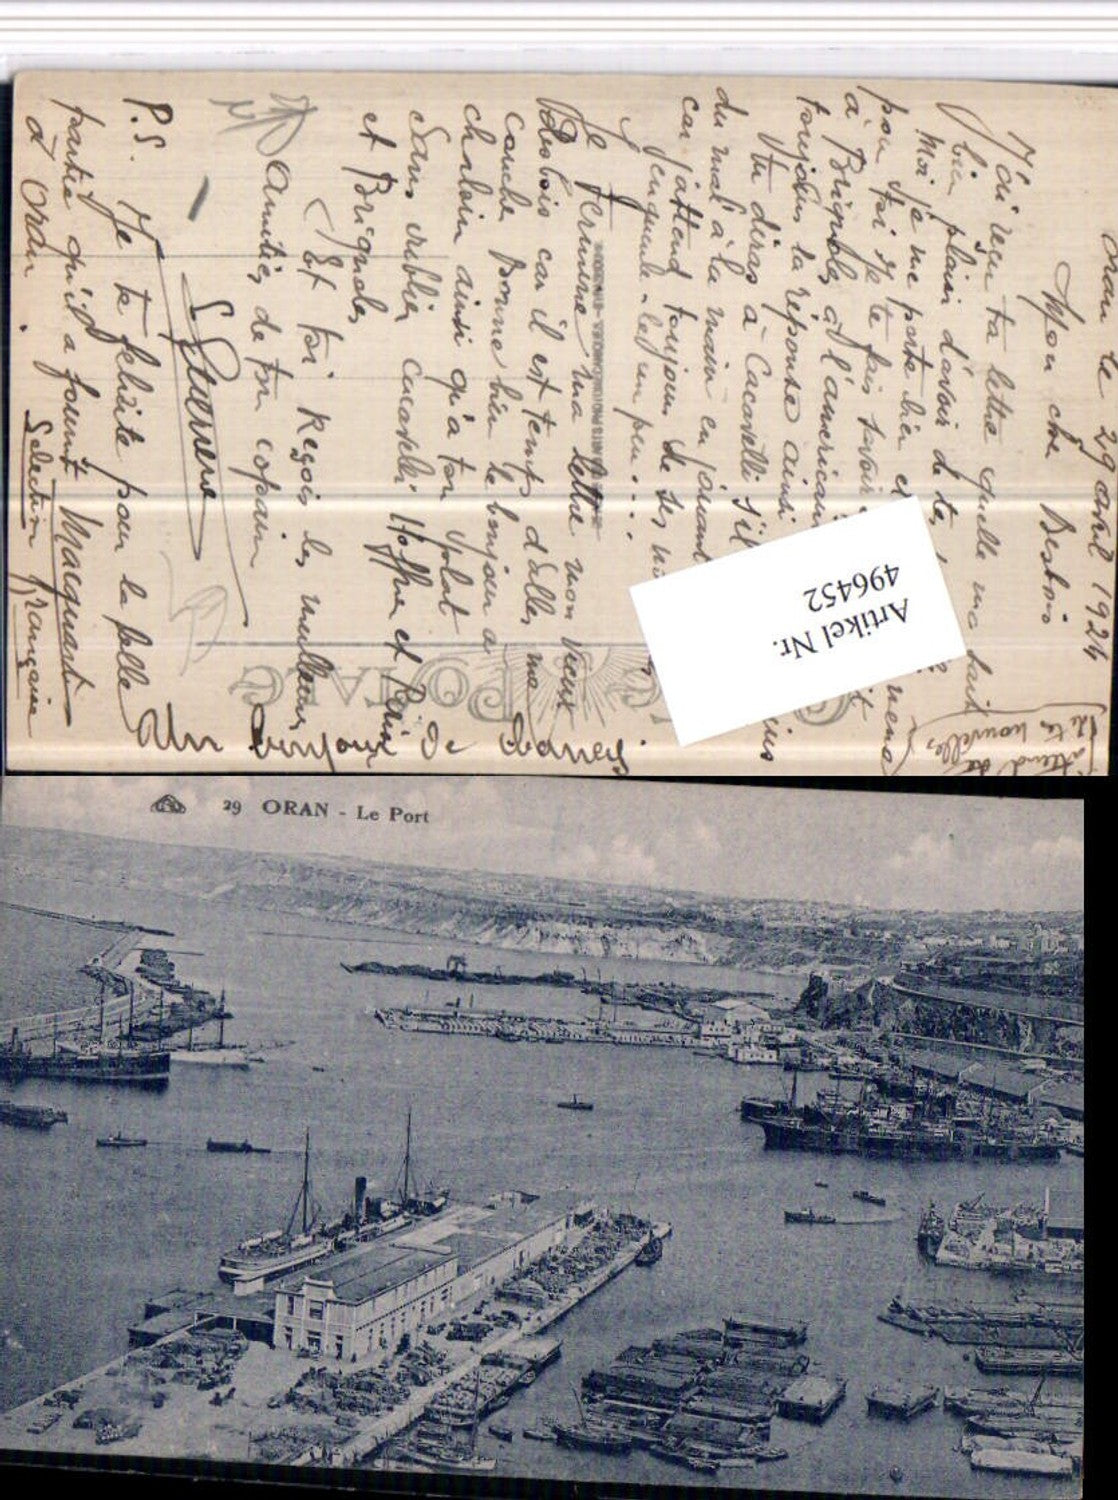 Oran le 29 avril 1924
Mon cher Besbois
J'ai reçu ta lettre quelle ma fait
bien plaisir d'avoir de tes
Moi je me porte bien et
pour toi Je te fais savoir
à Brignoles et l'americain
toujours la réponse ainsi
Tu diras à Cacavelli s'il
du mal à la main en jouant
car j'attend toujours de ses
J'engueule-les un peu....
Je termine ma lettre mon vieux
Desbois car il est temps d'aller me
coucher donne bien le bonjour a
chaloin ainsi qu'a ton
Sans oublier Cacavelli Hoffre et
et Brignoles
Et toi Reçois les meilleurs
Amitiés de ton copain
P.S. Je te félicite pour la belle
partie qu'il a fournit Macquart
à Oran. Selection française
Un bonjour de
attend de
de tes nouvelles
Artikel Nr.
496452
29 ORAN - Le Port